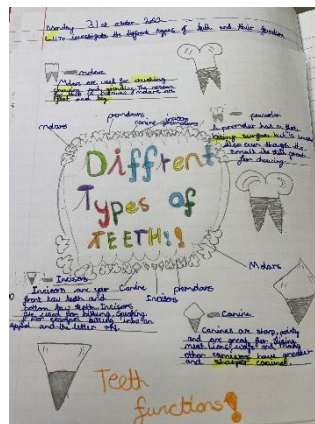 Monday 31st october 2022
L.I. To investigate the different types of teeth and their function
molars
Molars are used for crushing
chewing and grinding. The reason
for this is because molars are
flat and big.
premolar
A premolar has a flat
biting surface but is
also even though the
small its still great
for chewing.
molars
premolars
canine
incisors
premolars
Diffrent
Types of
TEETH!!
Molars
Incisors
Incisors are your
front top teeth and
bottom low teeth. Incisors
are used for biting,
For example biting into an
apple and the letter
Canine
Incisors
premolars
Canine
Canines are sharp, pointy
and are great for
meat. Lions, wolfs and many
other carnivores have
and sharper canines.
Teeth
functions!